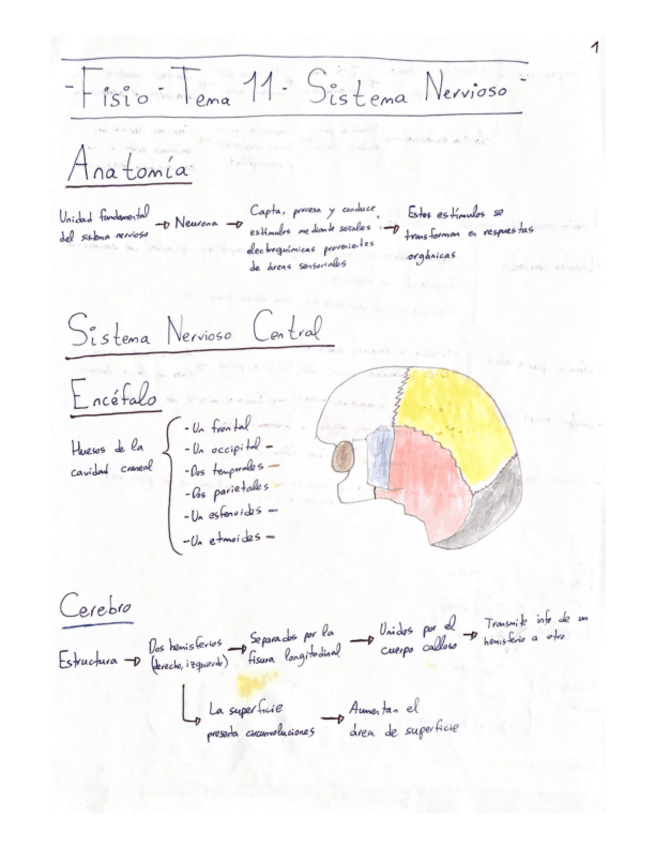 1
- Fisio - Tema 11 - Sistema Nervioso -
Anatomía
Unidad fundamental
del sistema nervioso → Neurona → Capta, procesa y conduce
estímulos mediante señales
electroquímicas provenientes
de áreas sensoriales → Estos estímulos se
transforman en respuestas
orgánicas
Sistema Nervioso Central
Encéfalo
Huesos de la
cavidad craneal
- Un frontal
- Un occipital -
- Dos temporales -
- Dos parietales
- Un esfenoides -
- Un etmoides -
Cerebro
Estructura → Dos hemisferios
(derecho, izquierdo) → Separados por la
fisura longitudinal → Unidos por el
cuerpo calloso → Transmite info de un
hemisferio a otro
La superficie
presenta circunvoluciones → Aumentan el
área de superficie